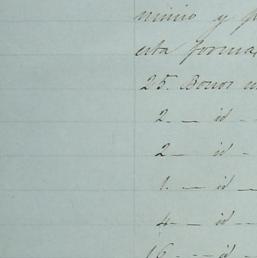 minio y
esta forma
25. Bonos
2. — id -
2 — id -
1. — id —
4 — id -
16 - - id -